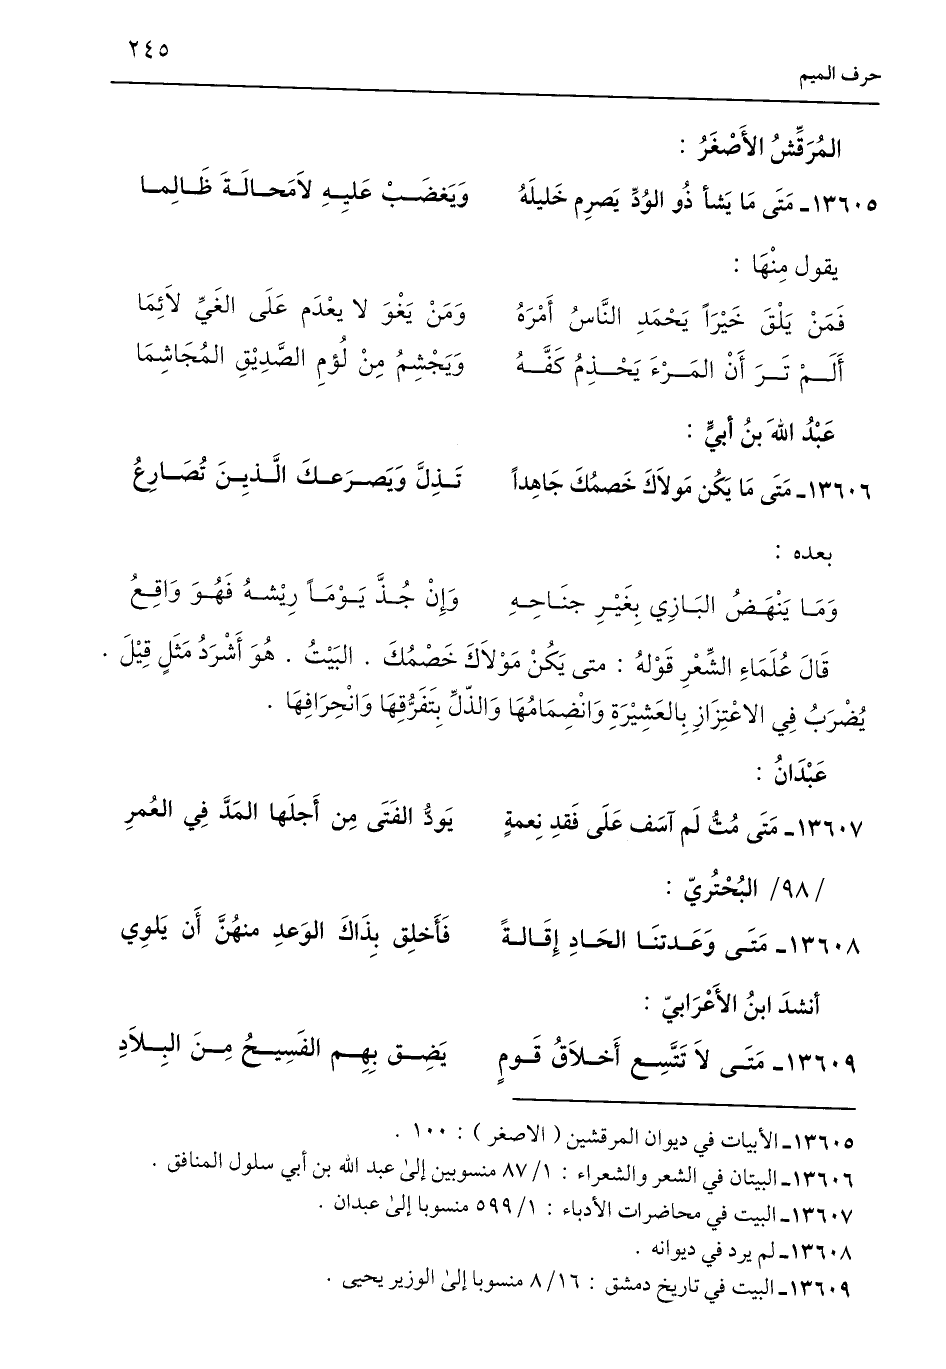 ٢٤٥
حرف الميم
المُرَقِّشُ الأَصْغَرُ :
١٣٦٠٥ـ مَتَى مَا يَشأ ذُو الوُدِّ يَصرِم خَليلَهُ وَيَغضَبْ عَليهِ لاَمَحالَةَ ظَالِما
يقول مِنْهَا :
فَمَنْ يَلْقَ خَيْرَاً يَحْمَدِ النَّاسُ أَمْرَهُ وَمَنْ يَغْوَ لا يعْدَم عَلَى الغَيِّ لاَئِمَا
أَلَمْ تَرَ أَنْ المَرْءَ يَحْذِمُ كَفَّهُ وَيَجْشِمُ مِنْ لُؤمِ الصَّدِيْقِ المُجَاشِمَا
عَبْدُ اللهَ بنُ أَبيٍّ :
١٣٦٠٦ـ مَتَى مَا يَكُن مَولاَكَ خَصمُكَ جَاهِداً تَذِلَّ وَيَصرَعكَ الَّذينَ تُصَارِعُ
بعده :
وَمَا يَنْهَضُ البَازِي بِغَيْرِ جنَاحِهِ وَإِنْ جُذَّ يَوْمَاً رِيْشهُ فَهُوَ وَاقِعُ
قَالَ عُلَمَاءِ الشِّعْرِ قَوْلهُ : متى يَكُنْ مَوْلاَكَ خَصْمُكَ . البَيْتُ . هُوَ أَشْرَدُ مَثَلٍ قِيْلَ .
يُضْرَبُ فِي الاعْتِزَازِ بِالعَشِيْرَةِ وَانْضِمَامُهَا وَالذّلِّ بِتَفَرُّقِهَا وَانْحِرَافِهَا .
عَبْدَانُ :
١٣٦٠٧ـ مَتَى مُتُّ لَم آسَف عَلَى فَقدِ نِعمةٍ يَودُّ الفَتَى مِن أَجلَها المَدَّ فِي العُمرِ
/٩٨/ البُحْتُريّ :
١٣٦٠٨ـ مَتَى وَعَدتنَا الحَادِ إقَالةً فَأَخلِق بِذَاكَ الوَعدِ منهُنَّ أَن يَلوِي
أنشدَ ابنُ الأَعْرَابيّ :
١٣٦٠٩ـ مَتَى لاَ تَتَّسِع أَخلاَقُ قَومٍ يَضِق بِهِم الفَسِيحُ مِنَ البِلاَدِ
١٣٦٠٥ـ الأبيات في ديوان المرقشين ( الاصغر ) : ١٠٠ .
١٣٦٠٦ـ البيتان في الشعر والشعراء : ١/ ٨٧ منسوبين إلىٰ عبد الله بن أبي سلول المنافق .
١٣٦٠٧ـ البيت في محاضرات الأدباء : ١/ ٥٩٩ منسوبا إلىٰ عبدان .
١٣٦٠٨ـ لم يرد في ديوانه .
١٣٦٠٩ـ البيت في تاريخ دمشق : ١٦/ ٨ منسوبا إلىٰ الوزير يحيى .